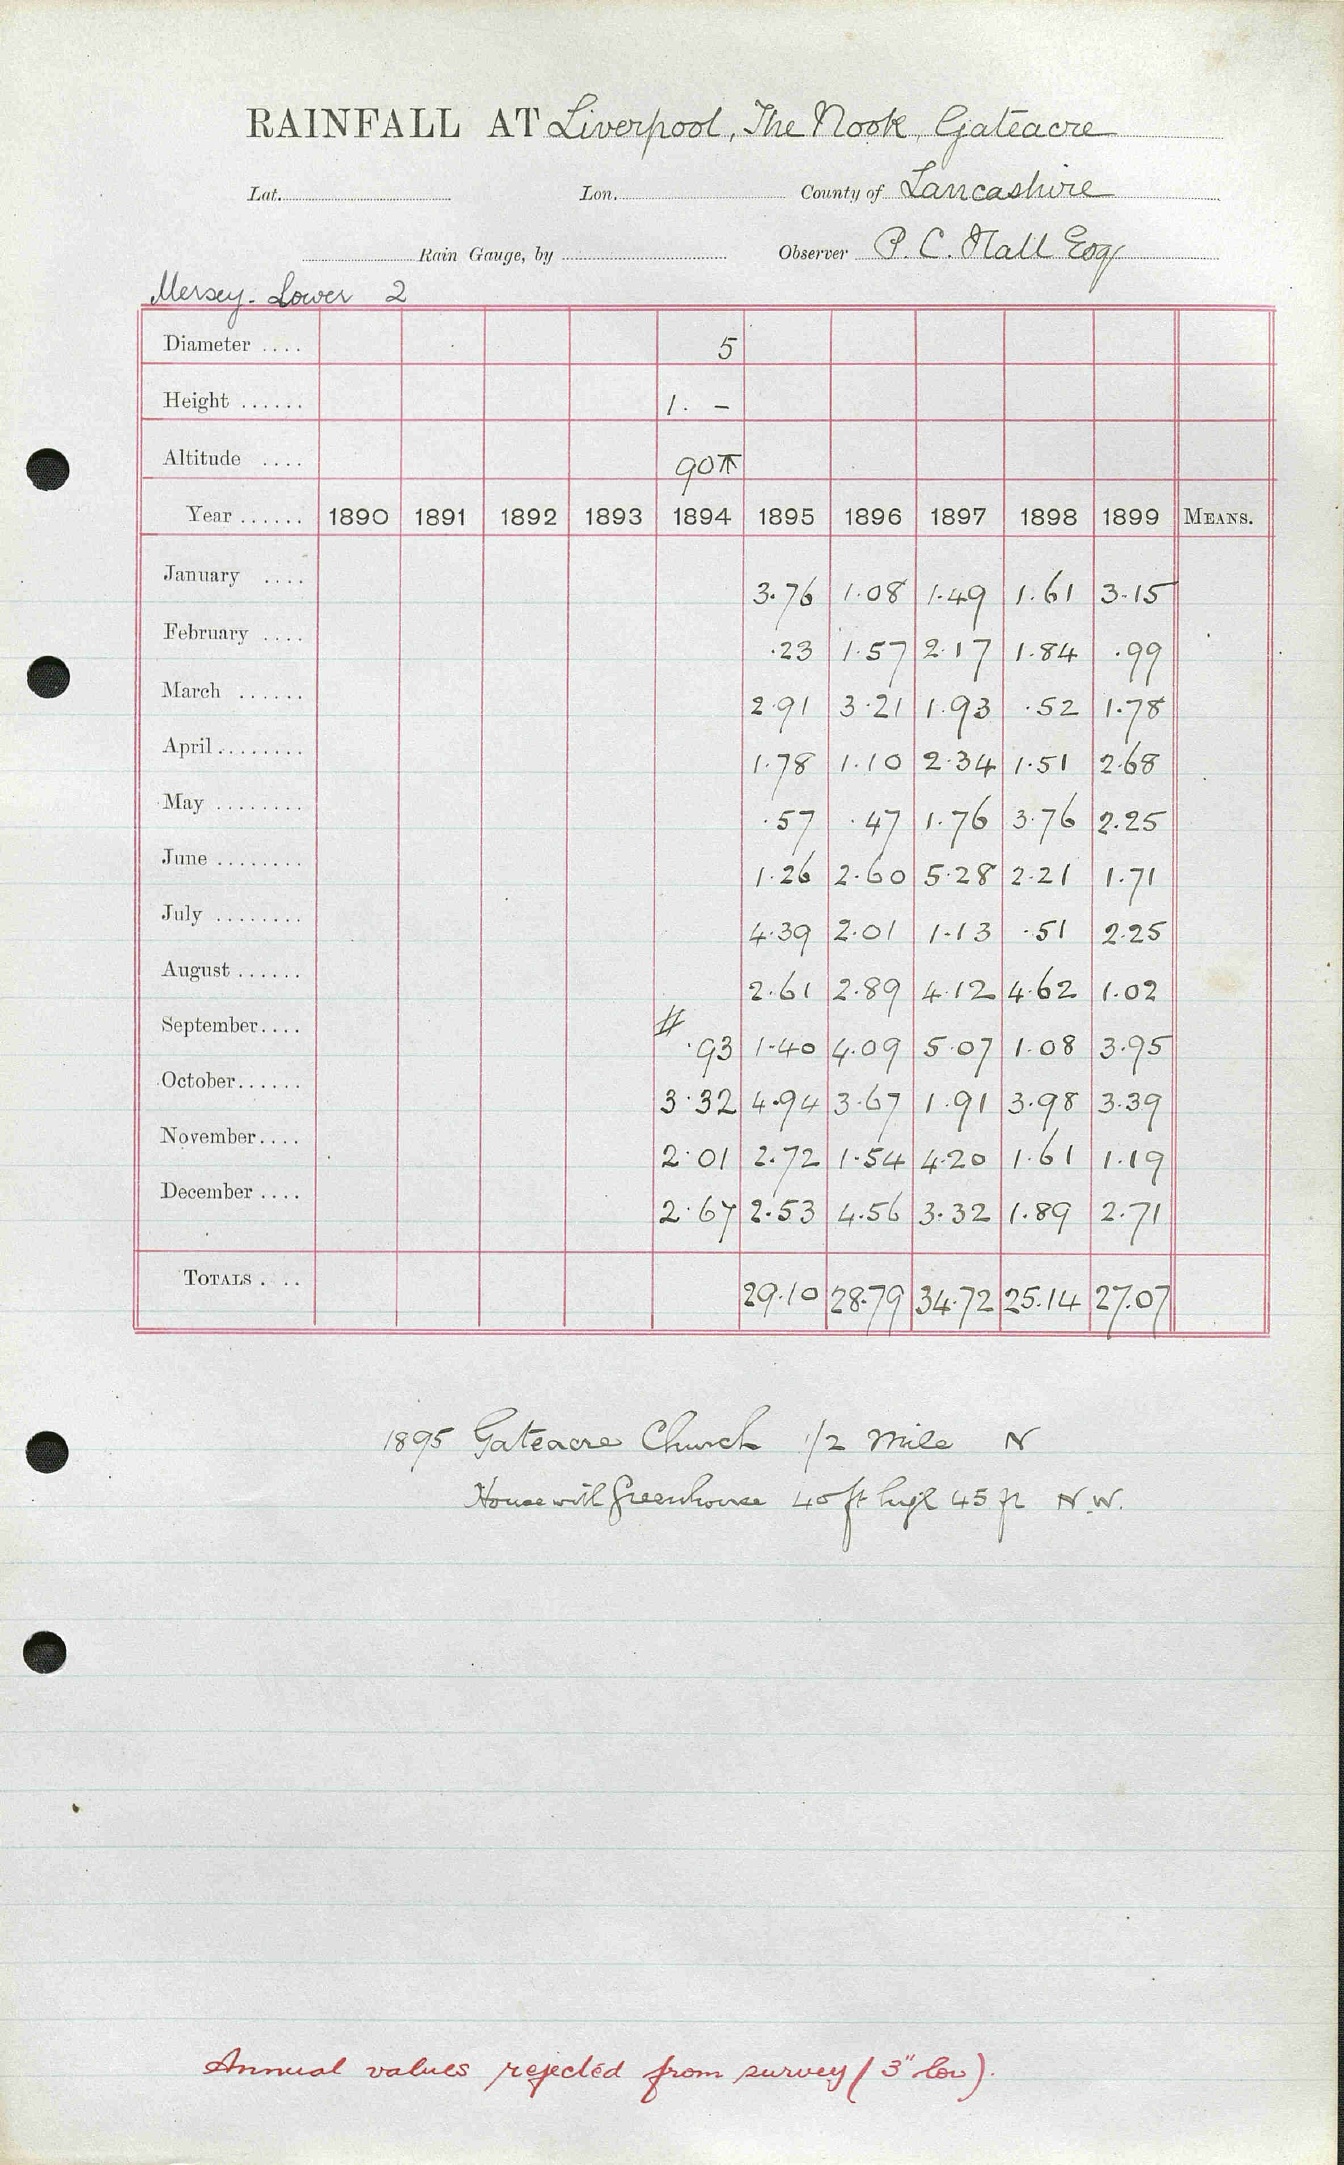 RAINFALL AT Liverpool, The Nook, Gateacre
Lat. Lon. County of Lancashire
Rain Gauge, by Observer P. C. Hall Esq
Mersey - Lower 2
Diameter .... 5
Height ...... 1. -
Altitude .... 90
Year ...... 1890 1891 1892 1893 1894 1895 1896 1897 1898 1899 MEANS.
January .... 3.76 1.08 1.49 1.61 3.15
February .... .23 1.57 2.17 1.84 .99
March ...... 2.91 3.21 1.93 .52 1.78
April ........ 1.78 1.10 2.34 1.51 2.68
May ........ .57 .47 1.76 3.76 2.25
June ........ 1.26 2.60 5.28 2.21 1.71
July ........ 4.39 2.01 1.13 .51 2.25
August ...... 2.61 2.89 4.12 4.62 1.02
September.... # .93 1.40 4.09 5.07 1.08 3.95
October...... 3.32 4.94 3.67 1.91 3.98 3.39
November.... 2.01 2.72 1.54 4.20 1.61 1.19
December .... 2.67 2.53 4.56 3.32 1.89 2.71
TOTALS . .. 29.10 28.79 34.72 25.14 27.07
1895 Gateacre Church 1/2 mile N
House with Greenhouse 40 ft high 45 ft N.W.
Annual values rejected from survey (3" low).